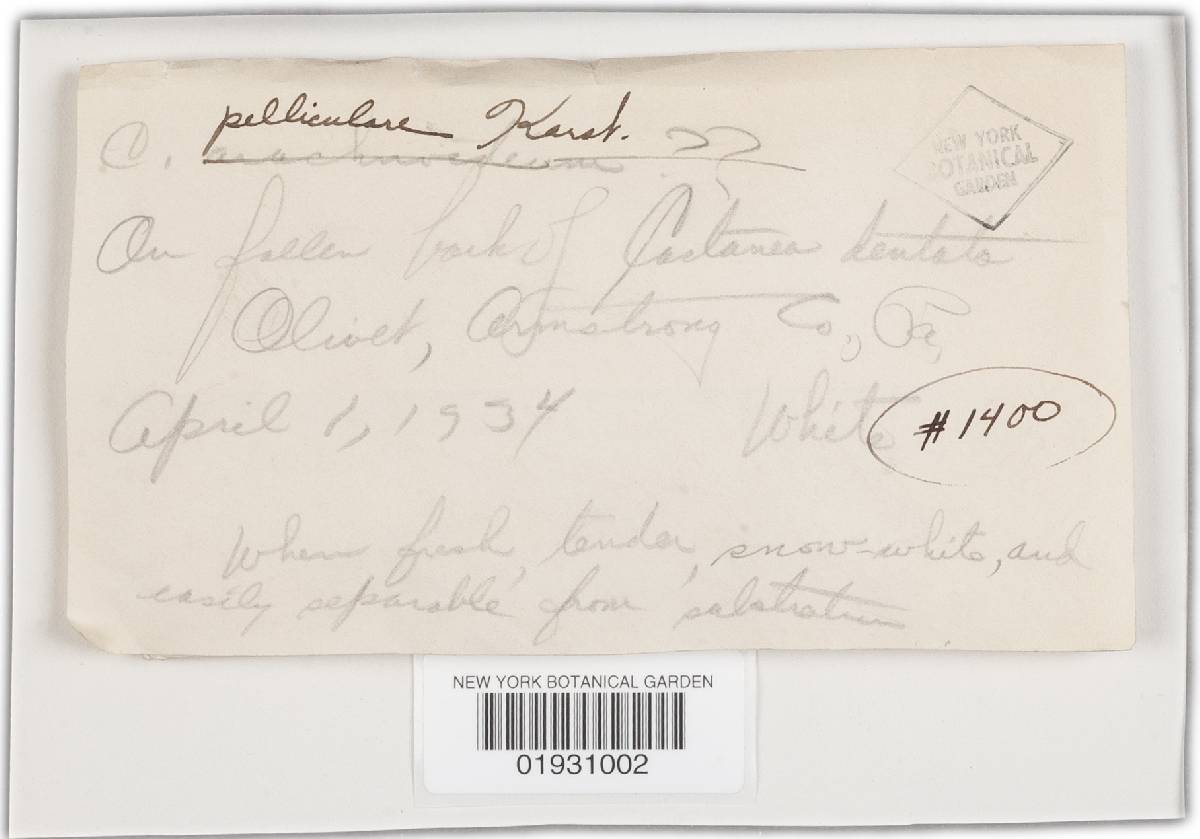 pelliculare Karst.
C. arachnoideum ??
NEW YORK
BOTANICAL
GARDEN
On fallen bark of Castanea dentata
Olivet, Armstrong Co., Pa.
April 1, 1934 White #1400
When fresh, tender, snow-white, and
easily separable from substratum
NEW YORK BOTANICAL GARDEN
01931002